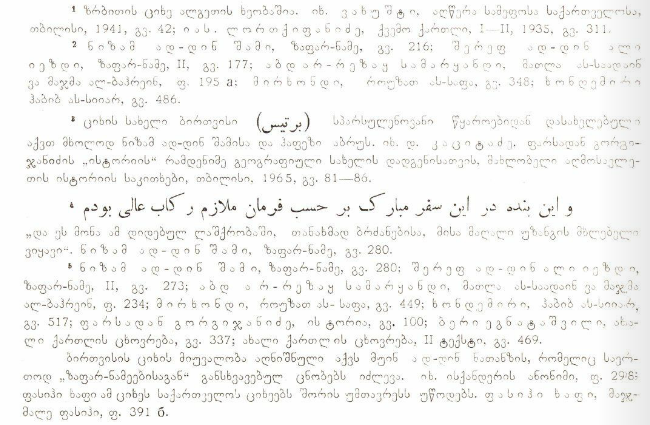 ¹ ზრბითის ციხე ალგეთის ხეობაშია. იხ. ვახუშტი, აღწერა სამეფოსა საქართველოსა,
თბილისი, 1941, გვ. 42; იას. ლორთქიფანიძე, ქვემო ქართლი, I—II, 1935, გვ. 311.
² ნიზამ ად-დინ შამი, ზაფარ-ნამე, გვ. 216; შერეფ ად-დინ ალი
იეზდი, ზაფარ-ნამე, II, გვ. 177; აბდ არ-რეზაყ სამარყანდი, მათლა ას-საადაინ
ვა მაჯმა ალ-ბაჰრეინ, ფ. 195 a; მირხონდი, როუზათ ას-საფა, გვ. 348; ხონდემირი
ჰაბიბ ას-სიიარ, გვ. 486.
³ ციხის სახელი ბირთვისი (برتيس) სპარსულენოვანი წყაროებიდან დასახელებული
აქვთ მხოლოდ ნიზამ ად-დინ შამისა და ჰაფეზი აბრუს. იხ. დ. კაციტაძე, ფარსადან გორგი-
ჯანიძის „ისტორიის“ რამდენიმე გეოგრაფიული სახელის დადგენისათვის, მახლობელი აღმოსავლე-
თის ისტორიის საკითხები, თბილისი, 1965, გვ. 81—86.
⁴ و اين بنده در اين سفر مبارک بر حسب فرمان ملازم رکاب عالى بودم
„და ეს მონა ამ დიდებულ ლაშქრობაში, თანახმად ბრძანებისა, მისა მაღალი უზანგის მხლებელი
ვიყავი“. ნიზამ ად-დინ შამი, ზაფარ-ნამე, გვ. 280.
⁵ ნიზამ ად-დინ შამი, ზაფარ-ნამე, გვ. 280; შერეფ ად-დინ ალი იეზდი,
ზაფარ-ნამე, II, გვ. 273; აბდ არ-რეზაყ სამარყანდი, მათლა ას-საადაინ ვა მაჯმა
ალ-ბაჰრეინ, ფ. 234; მირხონდი, როუზათ ას-საფა, გვ. 449; ხონდემირი, ჰაბიბ ას-სიიარ,
გვ. 517; ფარსადან გორგიჯანიძე, ისტორია, გვ. 100; ბერი ეგნატაშვილი, ახა-
ლი ქართლის ცხოვრება, გვ. 337; ახალი ქართლის ცხოვრება, II ტექსტი, გვ. 469.
ბირთვისის ციხის მიუვალობა აღნიშნული აქვს მუინ ად-დინ ნათანზის, რომელიც საერ-
თოდ „ზაფარ-ნამეებისაგან“ განსხვავებულ ცნობებს იძლევა. იხ. ისქანდერის ანონიმი, ფ. 298;
ფასიჰი ხაფი ამ ციხეს საქართველოს ციხეებს შორის უმთავრესს უწოდებს. ფასიჰი ხაფი, მაჯ-
მალე ფასიჰი, ფ. 391 б.